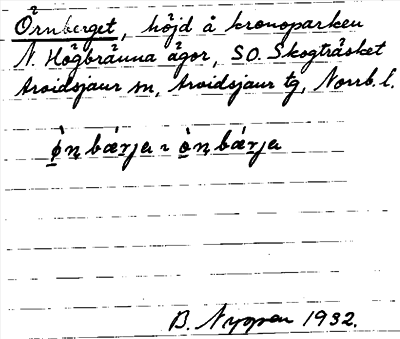 Örnberget, höjd å kronoparken
N. Högbränna ägor, SO. Skogträsket
Arvidsjaur sn, Arvidsjaur tg, Norrb. l.
ò̱ṇbǽrja ~ ò̱ṇbárja
B. Nygren 1932.